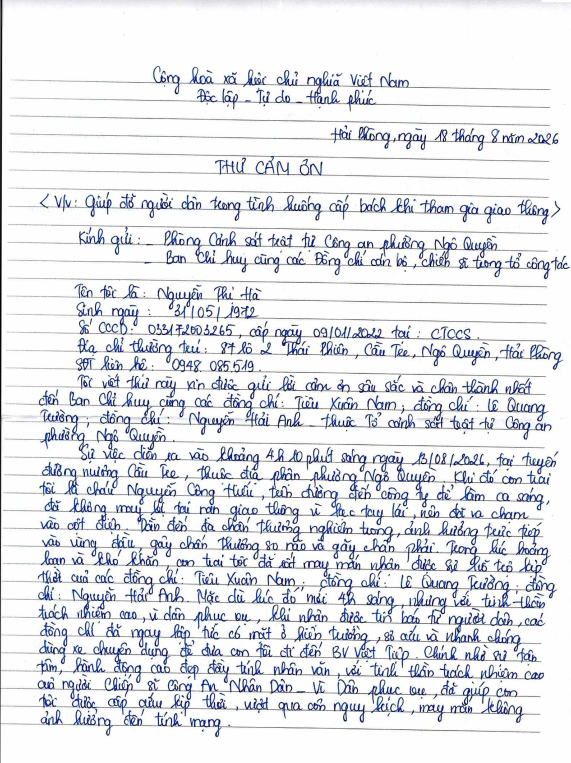 Cộng hoà xã hôc chủ nghĩa Việt Nam
Độc lập - Tự do - Hạnh phúc
Hải Phòng, ngày 18 tháng 8 năm 2026
THƯ CẢM ƠN
< V/v: Giúp đỡ người dân trong tình huống cấp bách khi tham gia giao thông>
Kính gửi: - Phòng Cảnh sát trật tự Công an phường Ngô Quyền
- Ban Chỉ huy cùng các Đồng chí cán bộ, chiến sĩ trong tổ công tác
Tên tôi là: Nguyễn Phi Hà
Sinh ngày : 31/05/1972
Số CCCD: 033172003265, cấp ngày 09/01/2022 tại: CTCCS.
Địa chỉ thường trú: 87 lô 2 Thái Phiên, Cầu Tre, Ngô Quyền, Hải Phòng
SĐT liên hệ: 0948 085.519.
Tôi viết thư này xin được gửi lời cảm ơn sâu sắc và chân thành nhất
đến Ban Chỉ huy cùng các đồng chí: Tiêu Xuân Nam; đồng chí: Lê Quang
Trưởng; đồng chí: Nguyễn Hải Anh - thuộc Tổ cảnh sát trật tự Công an
phường Ngô Quyền.
Sự việc diễn ra vào khoảng 4h 10 phút sáng ngày 13/08/2026, tại tuyến
đường mương Cầu Tre, thuộc địa phận phường Ngô Quyền. Khi đó con trai
tôi là cháu Nguyễn Công Hiếu, trên đường đến công ty để làm ca sáng,
đã không may bị tai nạn giao thông vì lạc tay lái, nên đã va chạm
vào cột điện. Dẫn đến đa chấn thương nghiêm trọng, ảnh hưởng trực tiếp
vào vùng đầu, gây chấn thương sọ não và gãy chân phải. Trong lúc hoảng
loạn và khó khăn, con trai tôi đã rất may mắn nhận được sự hỗ trợ kịp
thời của các đồng chí: Tiêu Xuân Nam; đồng chí: Lê Quang Trưởng; đồng
chí: Nguyễn Hải Anh. Mặc dù lúc đó mới 4h sáng, nhưng với tinh thần
trách nhiệm cao, vì dân phục vụ, khi nhận được tin báo từ người dân, các
đồng chí đã ngay lập tức có mặt ở hiện trường, sơ cứu và nhanh chóng
dùng xe chuyên dụng để đưa con tôi đi đến BV Việt Tiệp. Chính nhờ sự tận
tâm, hành động cao đẹp đầy tính nhân văn, với tinh thần trách nhiệm cao
của người Chiến sĩ Công An Nhân Dân - Vì Dân phục vụ, đã giúp con
tôi được cấp cứu kịp thời, vượt qua cơn nguy kịch, may mắn không
ảnh hưởng đến tính mạng.